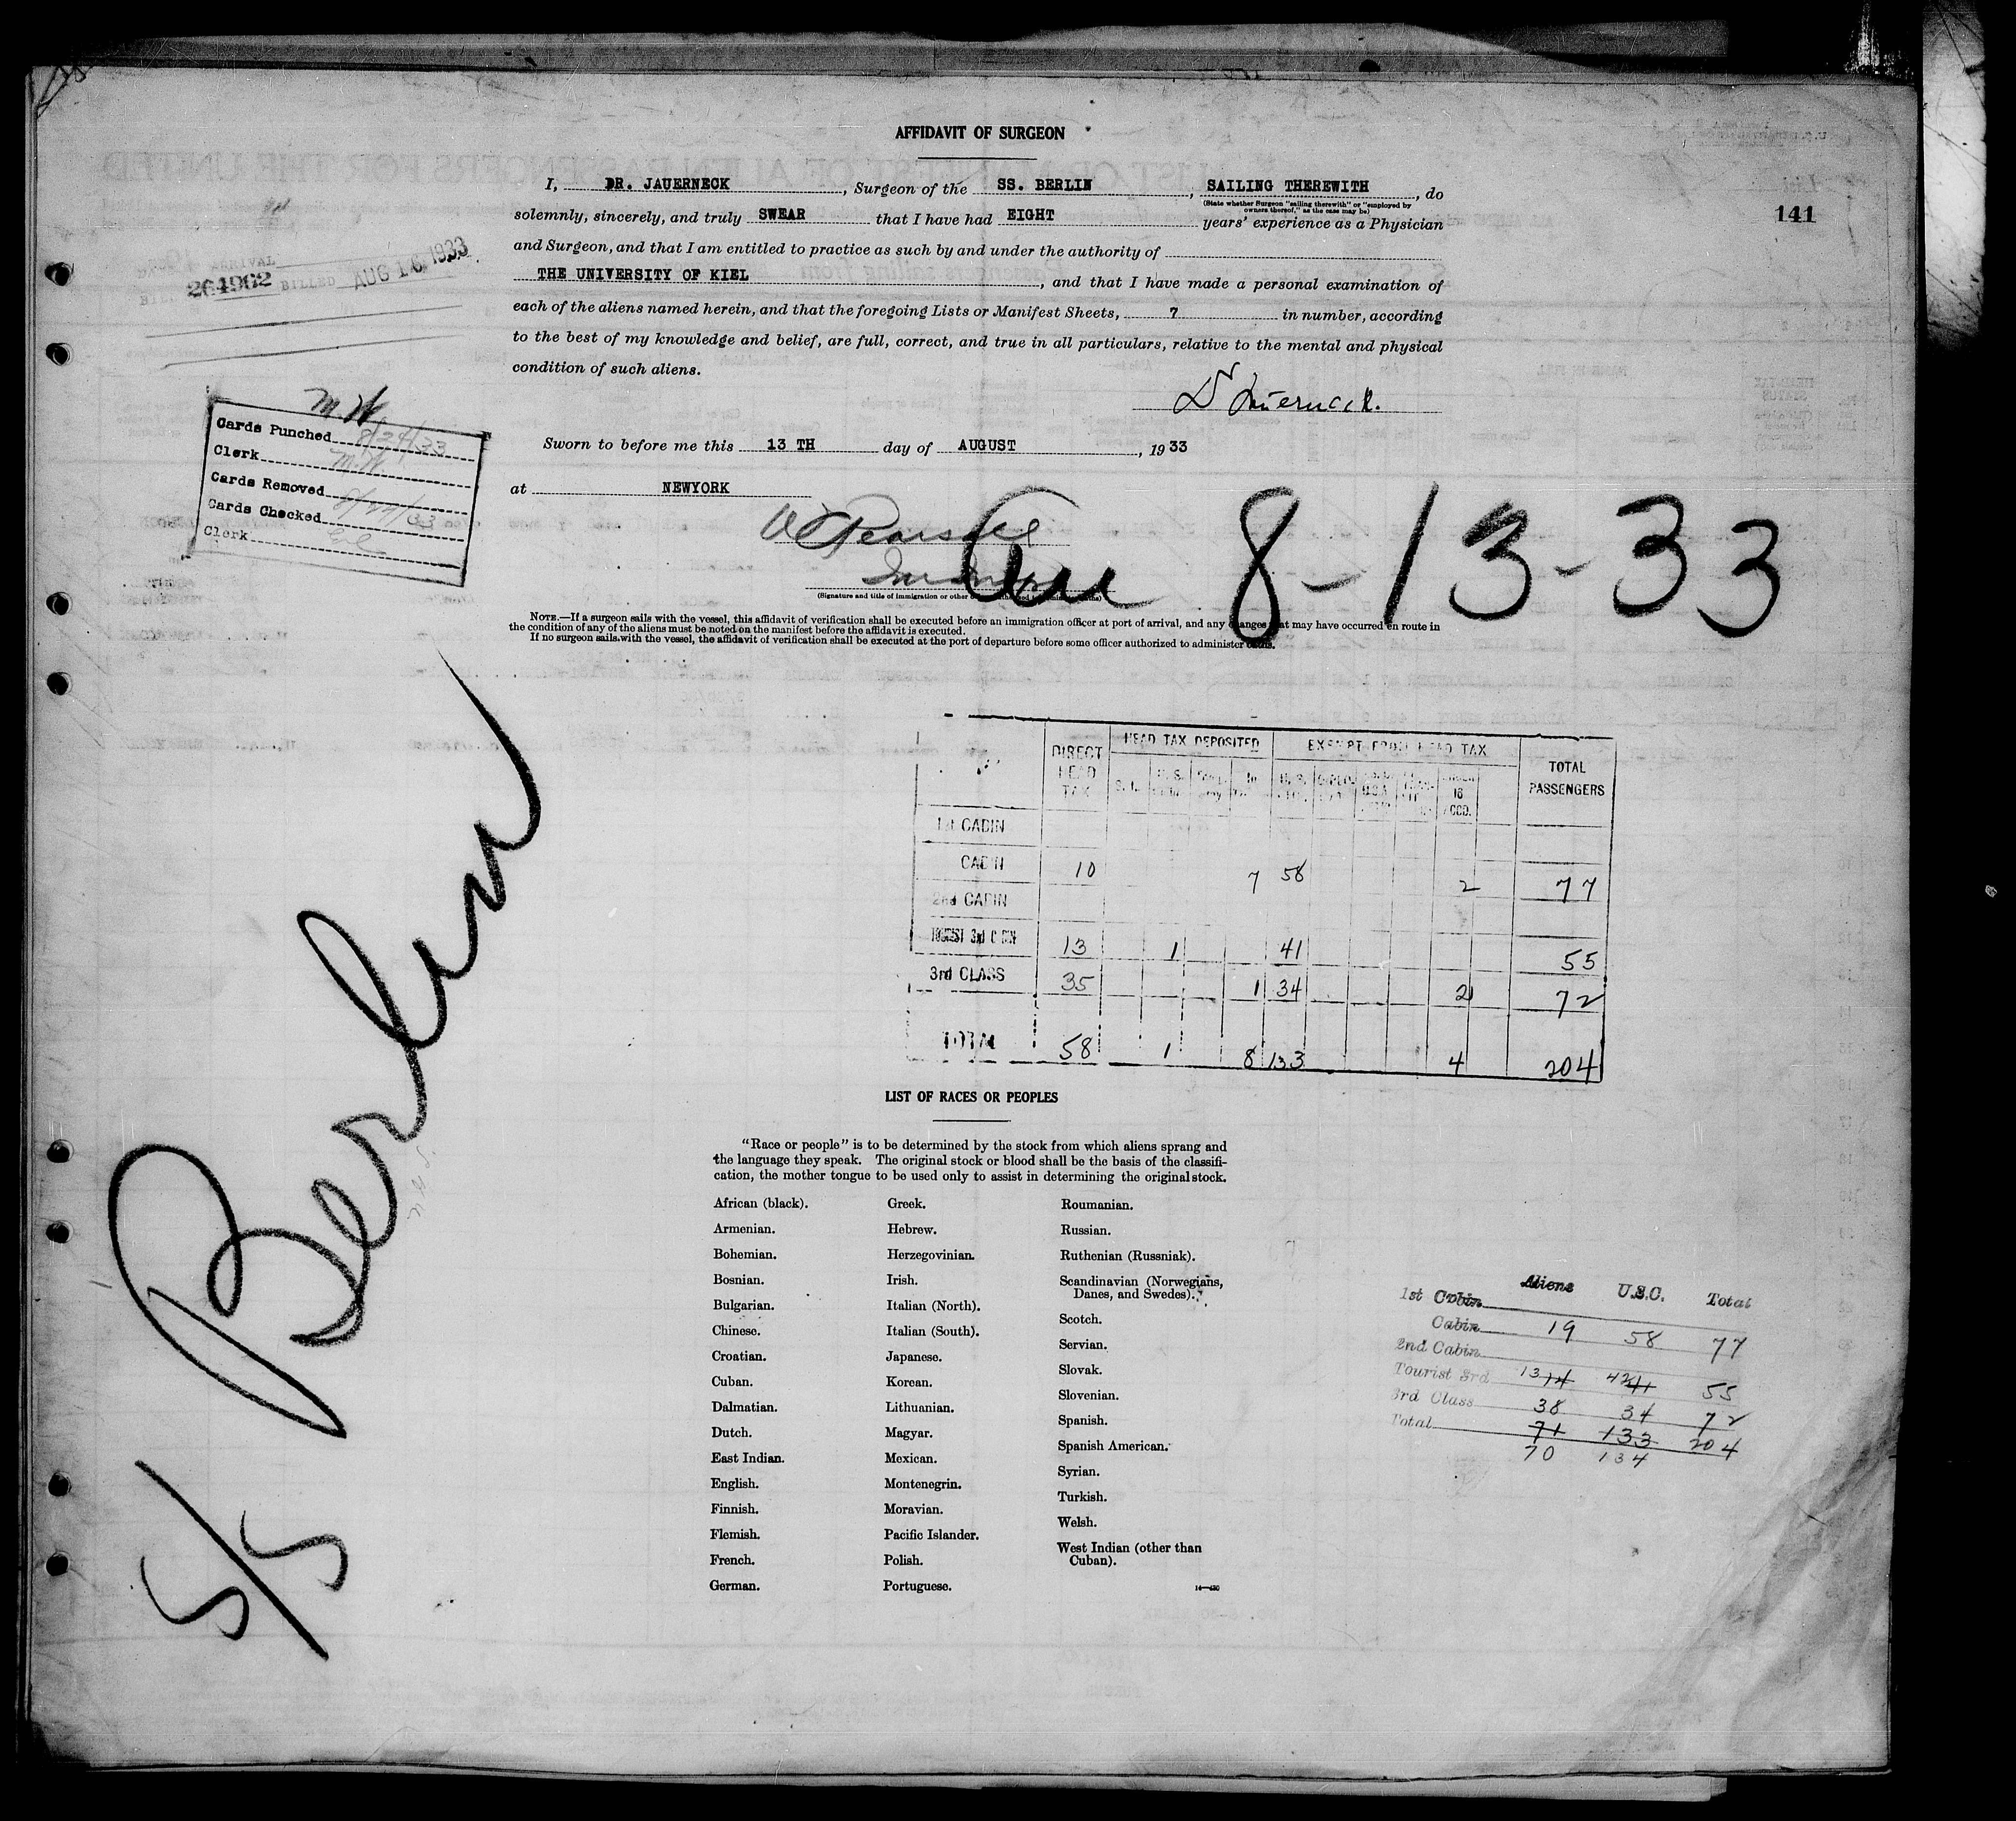 AFFIDAVIT OF SURGEON
141
I, DR. JAUERNECK, Surgeon of the SS. BERLIN, SAILING THEREWITH, do
(State whether Surgeon "sailing therewith" or "employed by
owners thereof," as the case may be)
solemnly, sincerely, and truly SWEAR that I have had EIGHT years' experience as a Physician
and Surgeon, and that I am entitled to practice as such by and under the authority of
THE UNIVERSITY OF KIEL, and that I have made a personal examination of
each of the aliens named herein, and that the foregoing Lists or Manifest Sheets, 7 in number, according
to the best of my knowledge and belief, are full, correct, and true in all particulars, relative to the mental and physical
condition of such aliens.
ARRIVAL
264962 BILLED AUG 16 1933
M.W.
Cards Punched 8/24/33
Clerk M.W.
Cards Removed
Cards Checked 8/24/33
Clerk
Dr Jauerneck.
Sworn to before me this 13 TH day of AUGUST, 1933
at NEWYORK
8-13-33
(Signature and title of immigration or other
NOTE.—If a surgeon sails with the vessel, this affidavit of verification shall be executed before an immigration officer at port of arrival, and any changes that may have occurred en route in
the condition of any of the aliens must be noted on the manifest before the affidavit is executed.
If no surgeon sails with the vessel, the affidavit of verification shall be executed at the port of departure before some officer authorized to administer oaths.
S/S Berlin
DIRECT HEAD TAX HEAD TAX DEPOSITED EXEMPT FROM HEAD TAX TOTAL PASSENGERS
1st CABIN
CABIN 10 7 58 2 77
2nd CABIN
TOURIST 3rd CABIN 13 1 41 55
3rd CLASS 35 1 34 2 72
TOTAL 58 1 8 133 4 204
LIST OF RACES OR PEOPLES
"Race or people" is to be determined by the stock from which aliens sprang and
the language they speak. The original stock or blood shall be the basis of the classifi-
cation, the mother tongue to be used only to assist in determining the original stock.
African (black).
Armenian.
Bohemian.
Bosnian.
Bulgarian.
Chinese.
Croatian.
Cuban.
Dalmatian.
Dutch.
East Indian.
English.
Finnish.
Flemish.
French.
German.
Greek.
Hebrew.
Herzegovinian.
Irish.
Italian (North).
Italian (South).
Japanese.
Korean.
Lithuanian.
Magyar.
Mexican.
Montenegrin.
Moravian.
Pacific Islander.
Polish.
Portuguese.
Roumanian.
Russian.
Ruthenian (Russniak).
Scandinavian (Norwegians,
Danes, and Swedes).
Scotch.
Servian.
Slovak.
Slovenian.
Spanish.
Spanish American.
Syrian.
Turkish.
Welsh.
West Indian (other than
Cuban).
14—430
Aliens U.S.C. Total
1st Cabin
Cabin 19 58 77
2nd Cabin
Tourist 3rd 13 14 42 41 55
3rd Class 38 34 72
Total 71 133 204
70 134